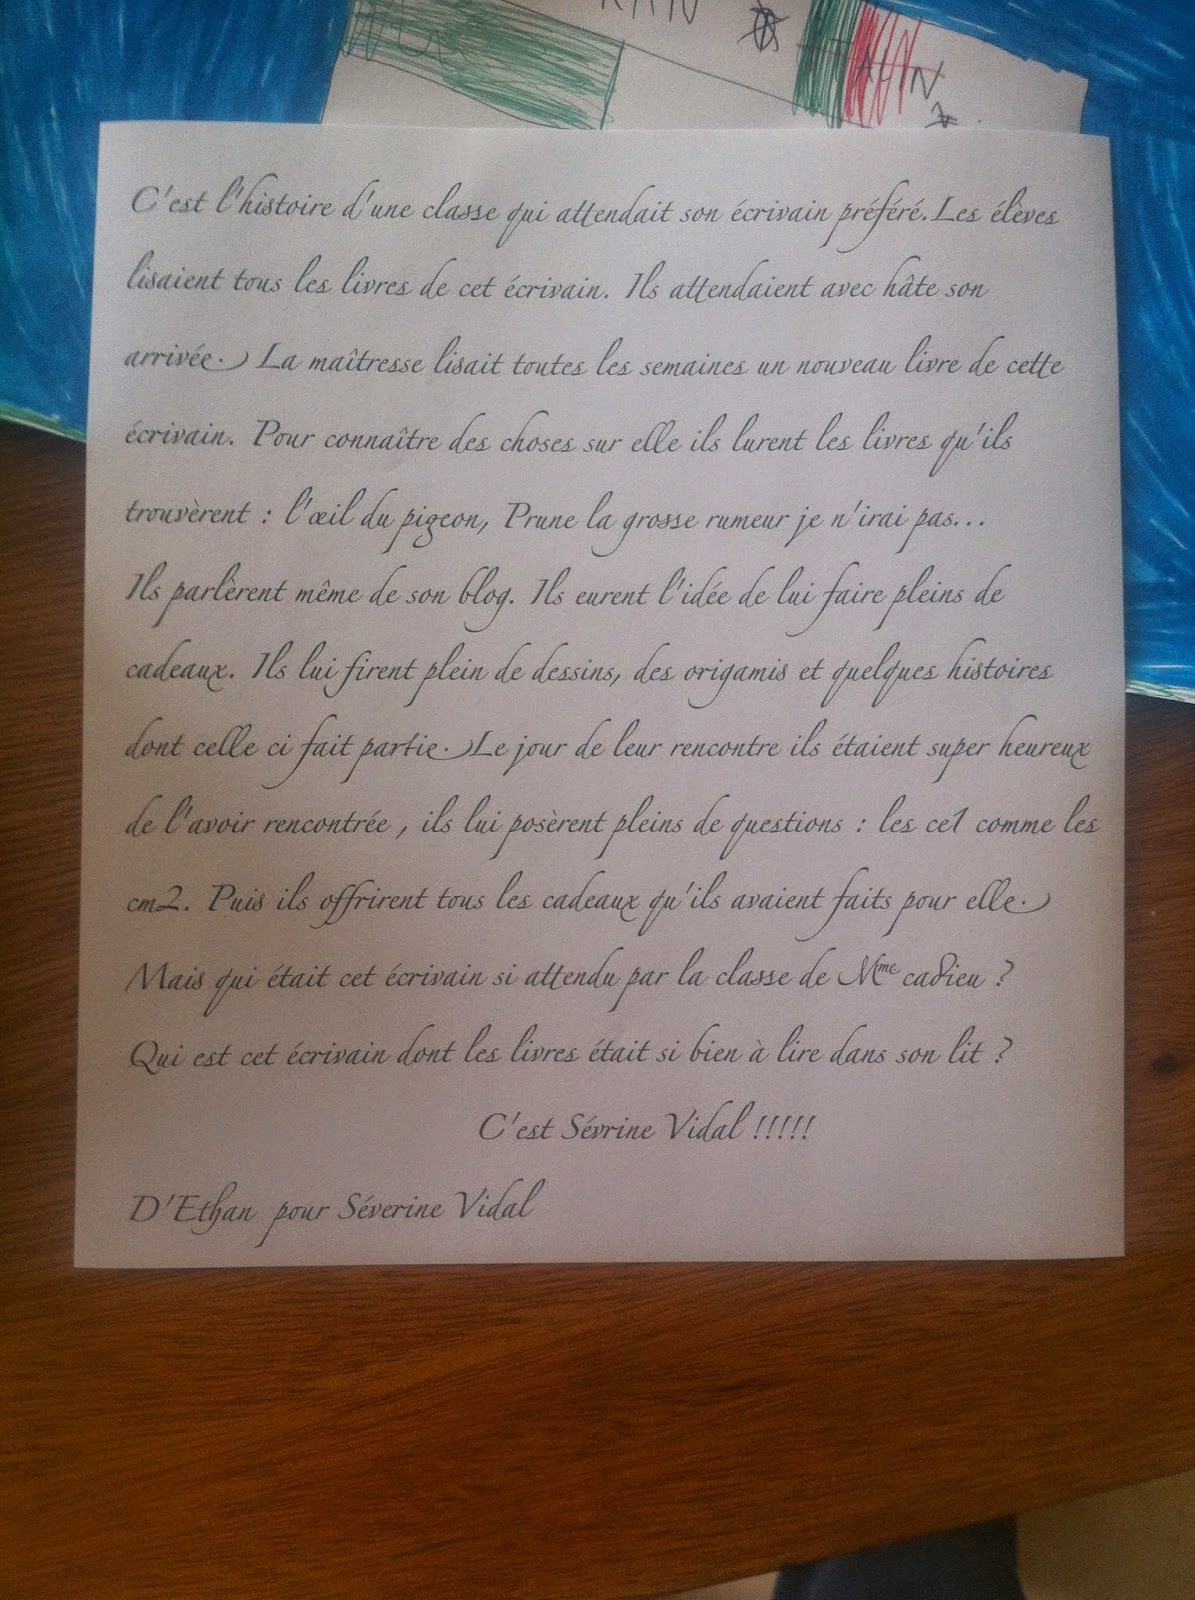 C'est l'histoire d'une classe qui attendait son écrivain préféré.Les élèves
lisaient tous les livres de cet écrivain. Ils attendaient avec hâte son
arrivée. La maîtresse lisait toutes les semaines un nouveau livre de cette
écrivain. Pour connaître des choses sur elle ils lurent les livres qu'ils
trouvèrent : l'œil du pigeon, Prune la grosse rumeur je n'irai pas...
Ils parlèrent même de son blog. Ils eurent l'idée de lui faire pleins de
cadeaux. Ils lui firent plein de dessins, des origamis et quelques histoires
dont celle ci fait partie. Le jour de leur rencontre ils étaient super heureux
de l'avoir rencontrée , ils lui posèrent pleins de questions : les ce1 comme les
cm2. Puis ils offrirent tous les cadeaux qu'ils avaient faits pour elle.
Mais qui était cet écrivain si attendu par la classe de Mme cadieu ?
Qui est cet écrivain dont les livres était si bien à lire dans son lit ?
C'est Sévrine Vidal !!!!!
D'Ethan pour Séverine Vidal